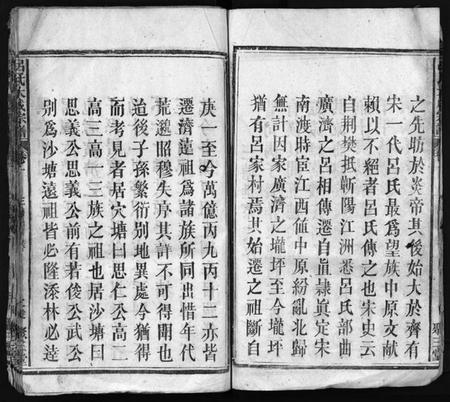 之先助於炎帝其後始大於齊有
宋一代呂氏最爲望族中原文献
賴以不絕者呂氏傳之也宋史云
自荆樊抵蘄陽江洲悉呂氏部曲
廣濟之呂相傳遷自直隸真定宋
南渡時宦江西值中原紛亂北歸
無計因家廣濟之壠坪至今壠坪
猶有呂家村焉其始遷之祖斷自
庚一至今萬億丙九丙十二亦皆
遷濟遠祖爲諸族所同出惜年代
荒邈昭穆失序其詳不可得聞也
迨後子孫繁衍别地異處今猶得
而考見者居穴塘曰思仁公高二
高三高一三族之祖也居沙塘曰
思義公思義公前有若俊公武公
别爲沙塘遠祖皆必隆添林必達
呂氏大成宗譜